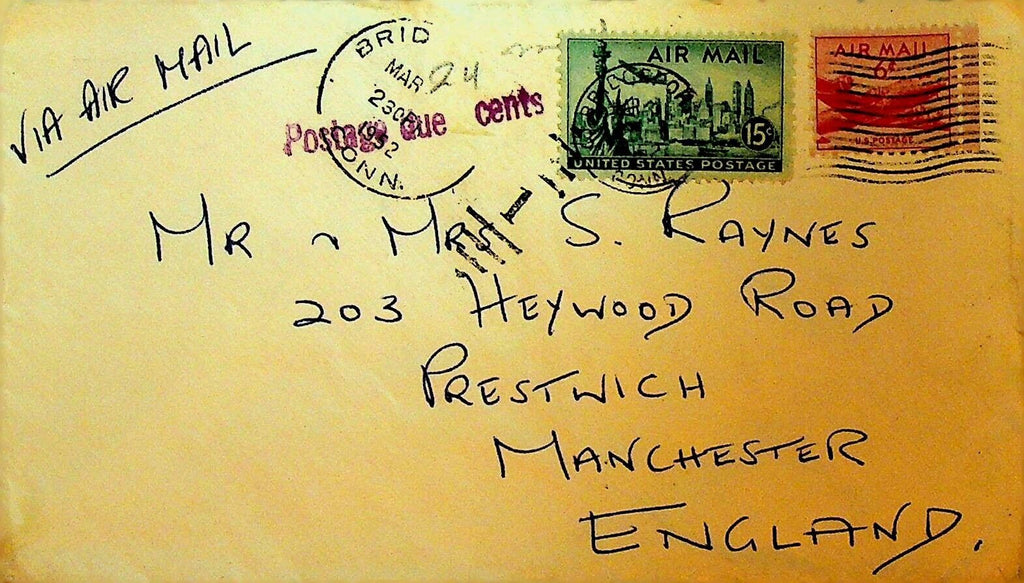 VIA AIR MAIL
BRID
MAR 24
230P
1952
CONN.
Postage due cents
AIR MAIL
15¢
UNITED STATES POSTAGE
CONN
AIR MAIL
6¢
U.S. POSTAGE
MR & MRS S. RAYNES
203 HEYWOOD ROAD
PRESTWICH
MANCHESTER
ENGLAND.